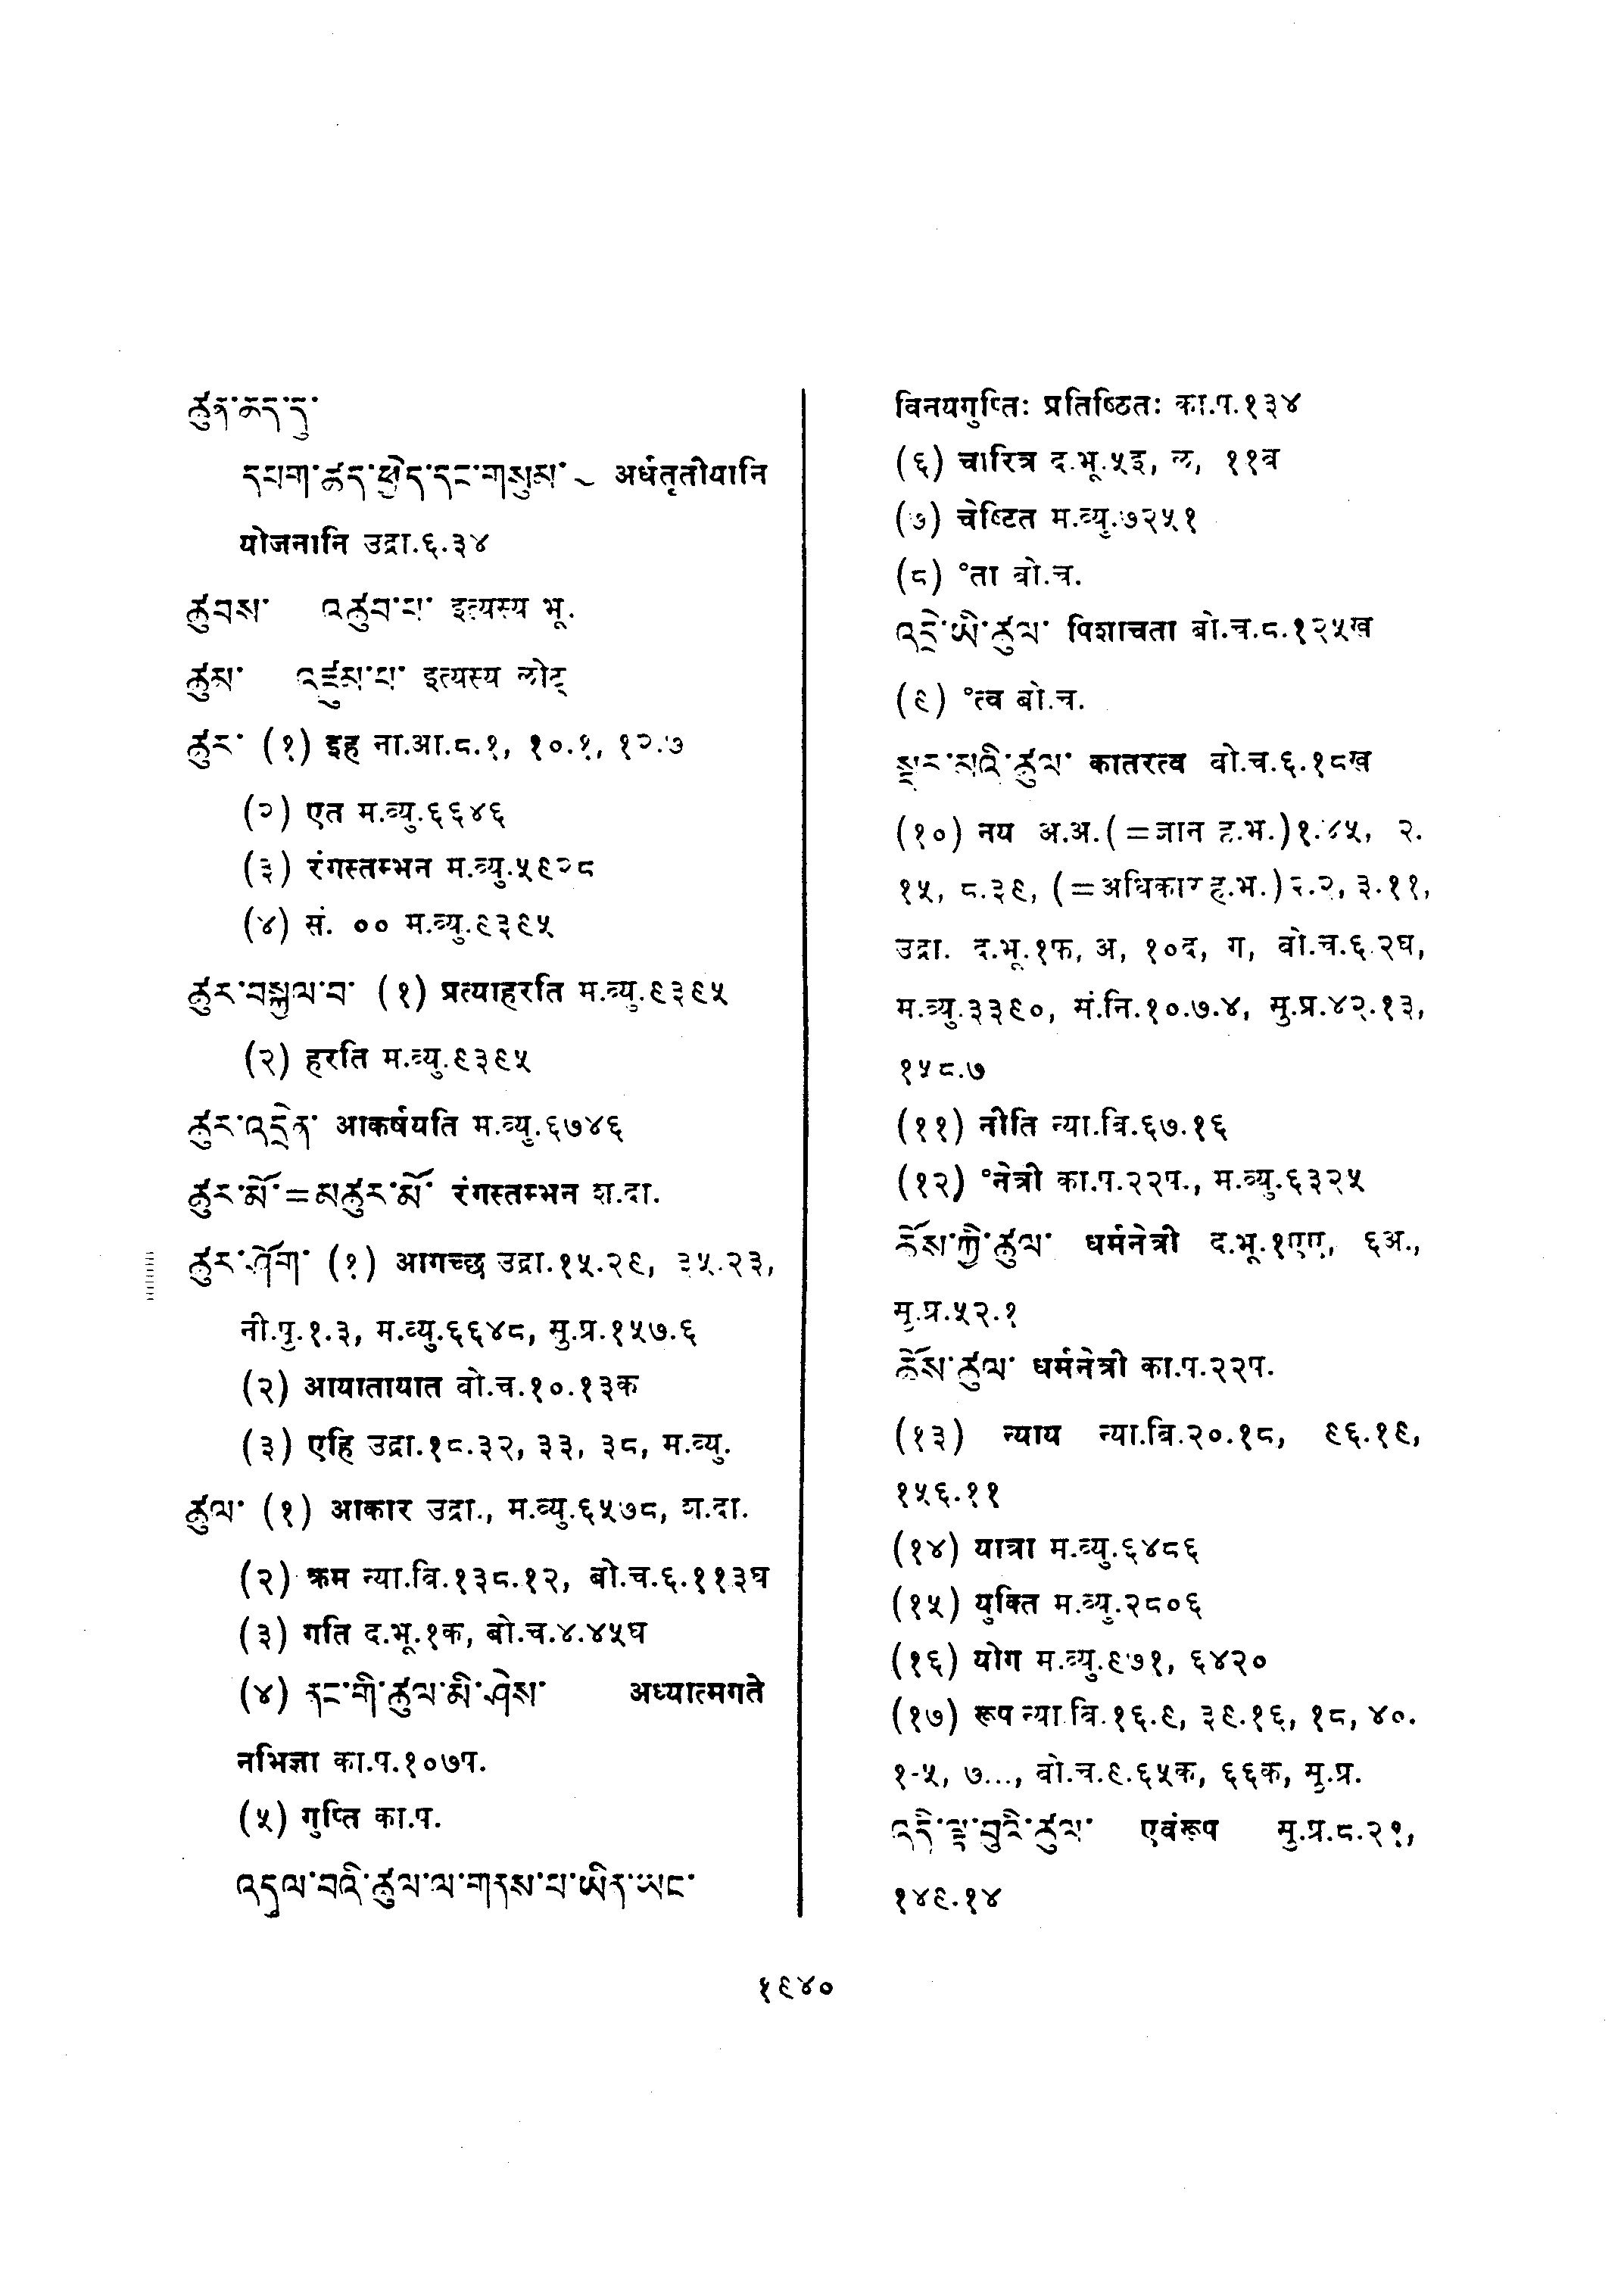 ཚུན་ཆད་དུ་
དཔག་ཚད་ཕྱེད་དང་གསུམ་ ~ अर्धतृतीयानि
योजनानि उद्रा.६.३४
ཚུབས་ འཚུབ་པ་ इत्यस्य भू.
ཚུམ་ འཛུམ་པ་ इत्यस्य लोट्
ཚུར་ (१) इह ना.आ.८.१, १०.१, १२.७
(२) एत म.व्यु.६६४६
(३) रंगस्तम्भन म.व्यु.५९२८
(४) सं. ०० म.व्यु.९३९५
ཚུར་བསྐུལ་བ་ (१) प्रत्याहरति म.व्यु.९३९५
(२) हरति म.व्यु.९३९५
ཚུར་འདྲེན་ आकर्षयति म.व्यु.६७४६
ཚུར་མོ་=མཚུར་མོ་ रंगस्तम्भन श.दा.
ཚུར་ཤོག་ (१) आगच्छ उद्रा.१५.२९, ३५.२३,
नी.पु.१.३, म.व्यु.६६४८, मु.प्र.१५७.६
(२) आयातायात बो.च.१०.१३क
(३) एहि उद्रा.१८.३२, ३३, ३८, म.व्यु.
ཚུལ་ (१) आकार उद्रा., म.व्यु.६५७८, श.दा.
(२) क्रम न्या.वि.१३८.१२, बो.च.६.११३घ
(३) गति द.भू.१क, बो.च.४.४५घ
(४) ནང་གི་ཚུལ་མི་ཤེས་ अध्यात्मगते
नभिज्ञा का.प.१०७प.
(५) गुप्ति का.प.
འདུལ་བའི་ཚུལ་ལ་གནས་པ་ཡིན་ཡང་
विनयगुप्तिः प्रतिष्ठितः का.प.१३४
(६) चारित्र द.भू.५इ, ल, ११व
(७) चेष्टित म.व्यु.७२५१
(८) °ता बो.च.
འདྲེ་ཡི་ཚུལ་ पिशाचता बो.च.८.१२५ख
(९) °त्व बो.च.
སྡར་མའི་ཚུལ་ कातरत्व बो.च.६.१८ख
(१०) नय अ.अ.(=ज्ञान ह.भ.)१.४५, २.
१५, ८.३९, (=अधिकार ह.भ.)२.२, ३.११,
उद्रा. द.भू.१फ, अ, १०द, ग, बो.च.६.२घ,
म.व्यु.३३९०, मं.नि.१०.७.४, मु.प्र.४२.१३,
१५८.७
(११) नीति न्या.वि.६७.१६
(१२) °नेत्री का.प.२२प., म.व्यु.६३२५
ཆོས་ཀྱི་ཚུལ་ धर्मनेत्री द.भू.१एए, ६अ.,
मु.प्र.५२.१
ཆོས་ཚུལ་ धर्मनेत्री का.प.२२प.
(१३) न्याय न्या.वि.२०.१८, ९६.१९,
१५६.११
(१४) यात्रा म.व्यु.६४८६
(१५) युक्ति म.व्यु.२८०६
(१६) योग म.व्यु.९७१, ६४२०
(१७) रूप न्या.वि.१६.९, ३९.१६, १८, ४०.
१-५, ७..., बो.च.९.६५क, ६६क, मु.प्र.
འདི་ལྟ་བུའི་ཚུལ་ एवंरूप मु.प्र.८.२१,
१४९.१४
१९४०